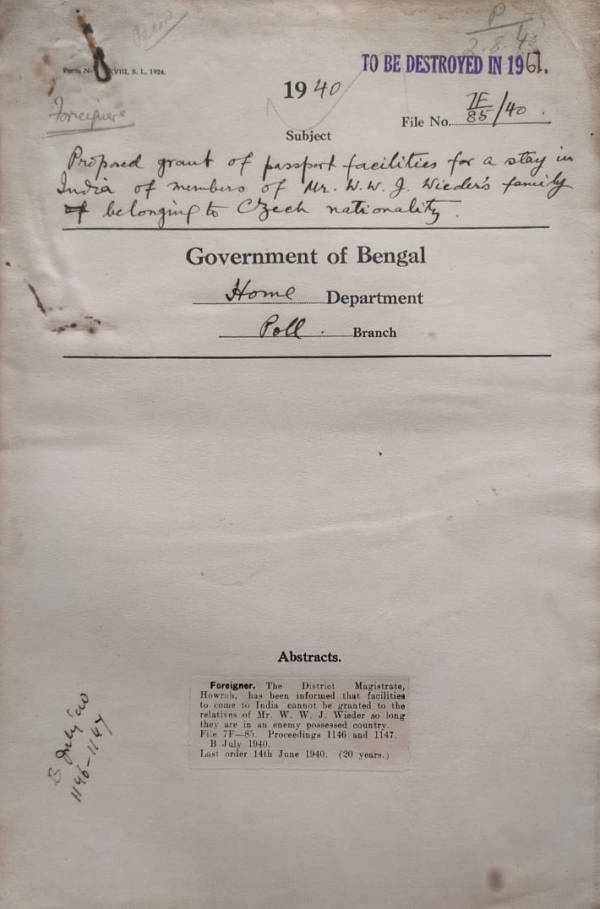 P
2.8.40
TO BE DESTROYED IN 1961.
VIII, S. I., 1924.
1940
Foreigners
File No. 7F/85/40.
Subject
Proposed grant of passport facilities for a stay in
India of members of Mr. W. W. J. Wieder's family
of belonging to Czech nationality.
Government of Bengal
Home Department
Poll. Branch
Abstracts.
Foreigner. The District Magistrate,
Howrah, has been informed that facilities
to come to India cannot be granted to the
relatives of Mr. W. W. J. Wieder so long
they are in an enemy possessed country.
File 7F—85. Proceedings 1146 and 1147.
B July 1940.
Last order 14th June 1940. (20 years.)
B July '40
1146-1147